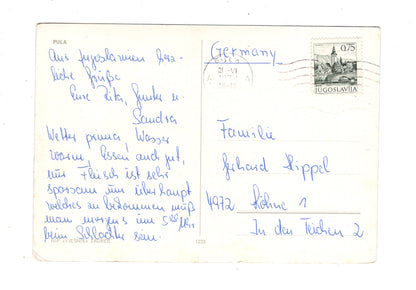 PULA
Aus Jugoslawien herz-
liche Grüße
Eure Rita, Gunter u.
Sandra
Wetter prima, Wasser
warm, Essen auch gut,
nur Fleisch ist sehr
sparsam um überhaupt
welches zu bekommen muß
man morgens um 5 00 Uhr
beim Schlachter sein.
Germany
0,75
JUGOSLAVIJA
Familie
Gerhard Kippel
4972 Löhne 1
In den Teichen 2
1233